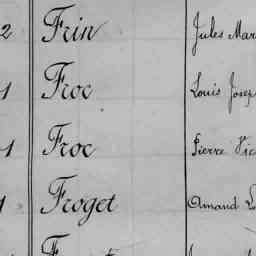 2 Frin Jules Mar
1 Froc Louis Josep
1 Froc Pierre Vic
1 Froget Amand L